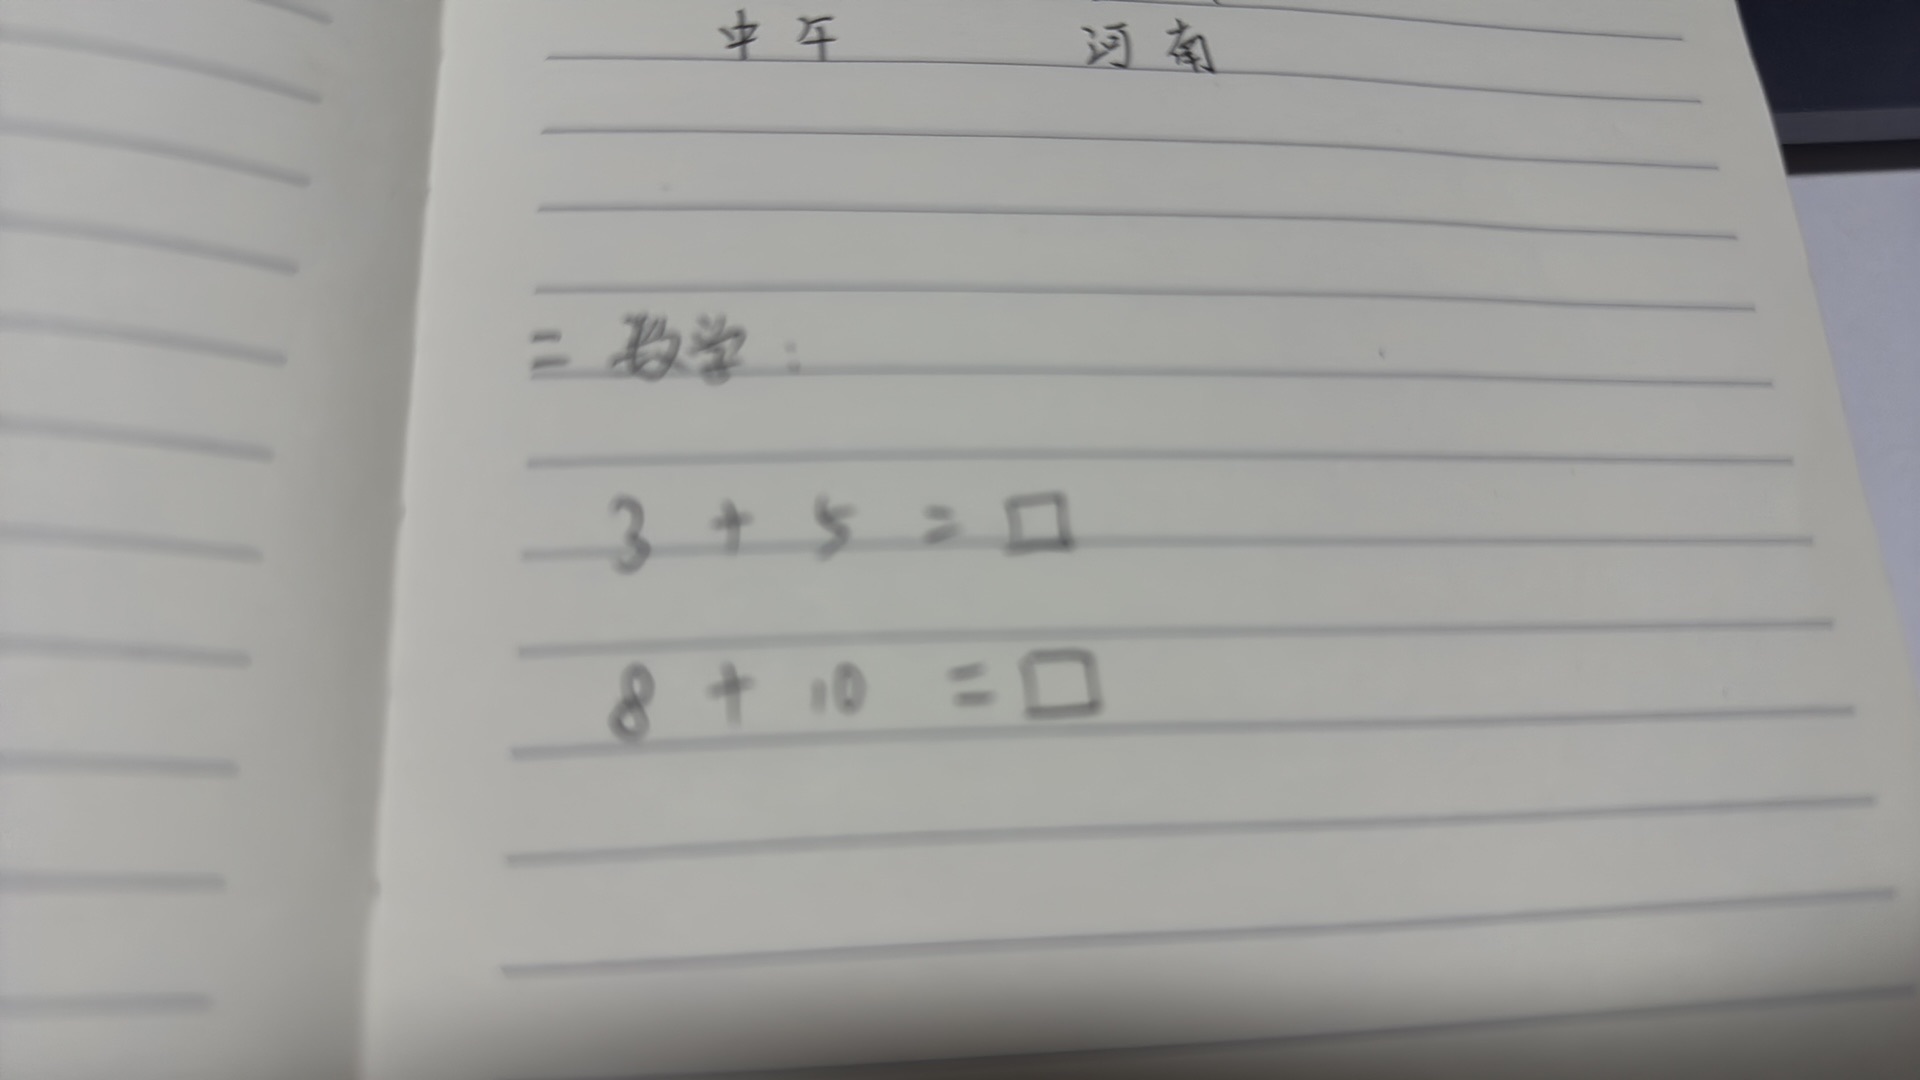 中午 河南
二 数学:
3 + 5 = □
8 + 10 = □